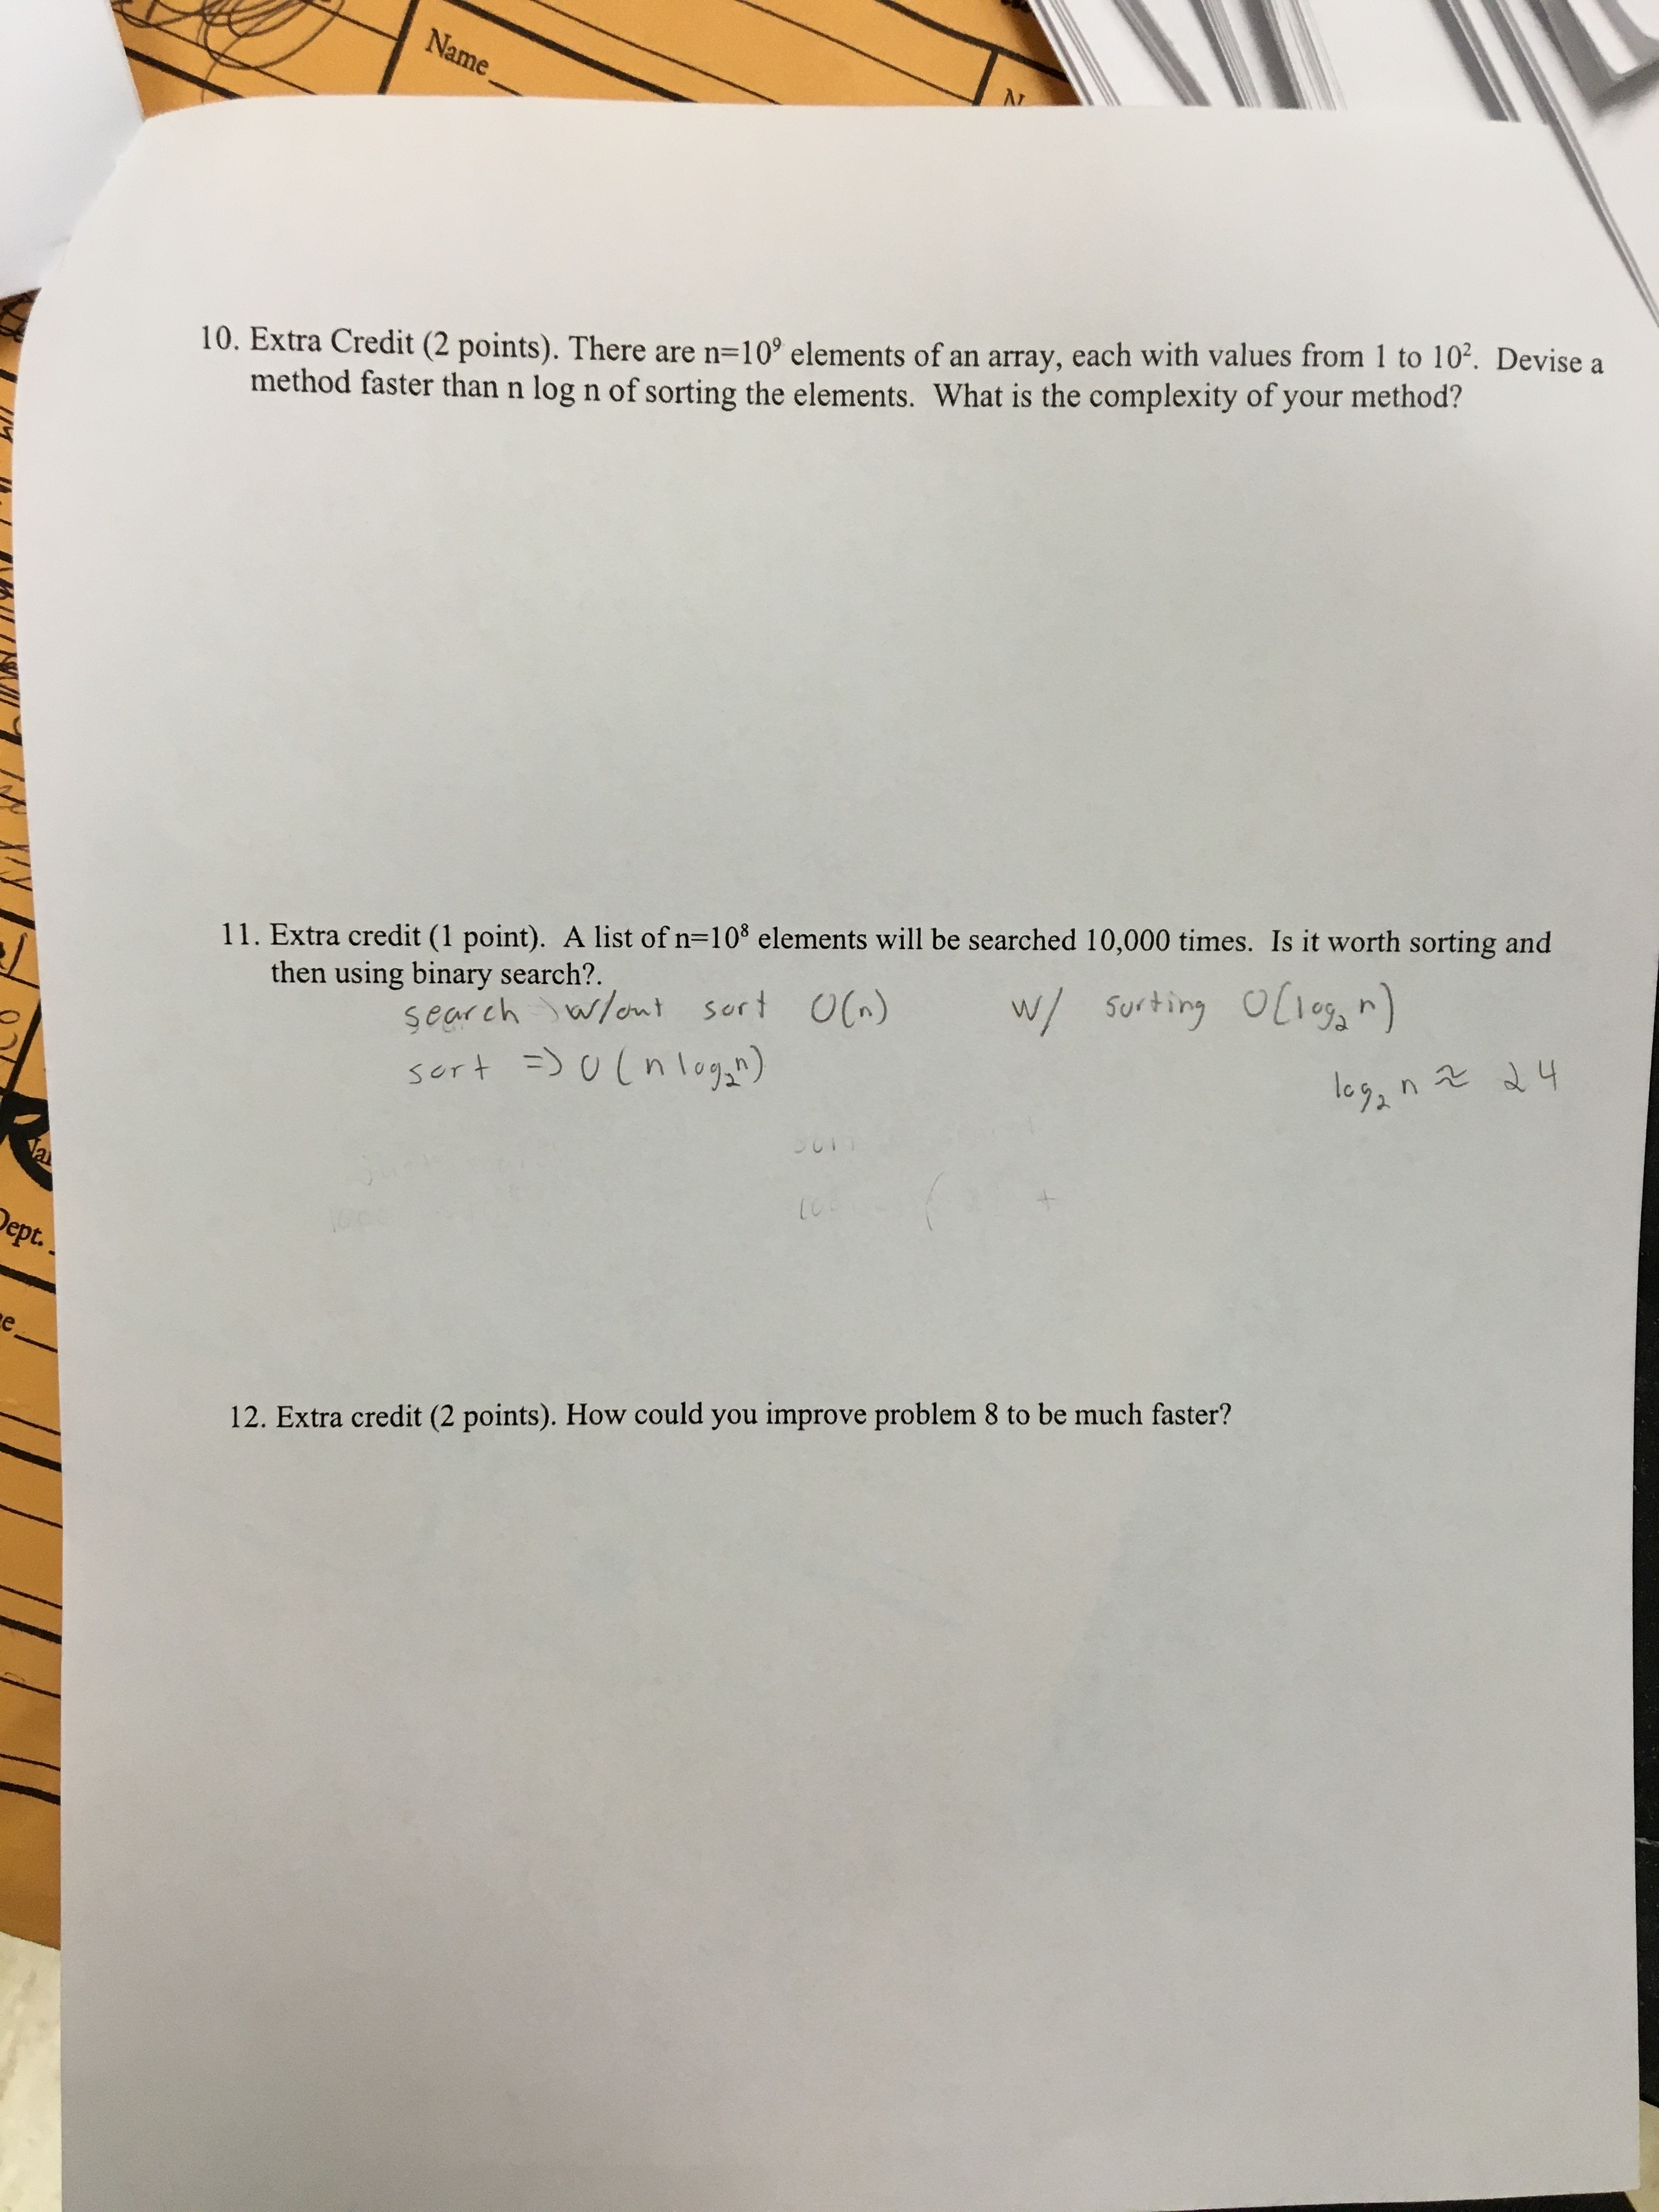 Name
N
10. Extra Credit (2 points). There are n=10⁹ elements of an array, each with values from 1 to 10². Devise a
method faster than n log n of sorting the elements. What is the complexity of your method?
11. Extra credit (1 point). A list of n=10⁸ elements will be searched 10,000 times. Is it worth sorting and
then using binary search?.
search w/out sort O(n) w/ sorting O(log₂ n)
sort => O(n log₂ n)
log₂ n ≈ 24
Dept.
12. Extra credit (2 points). How could you improve problem 8 to be much faster?